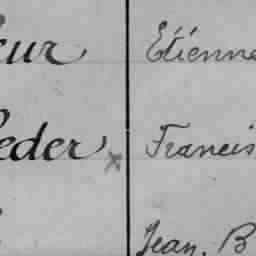 eur Etienne
eder x Francis
Jean. B